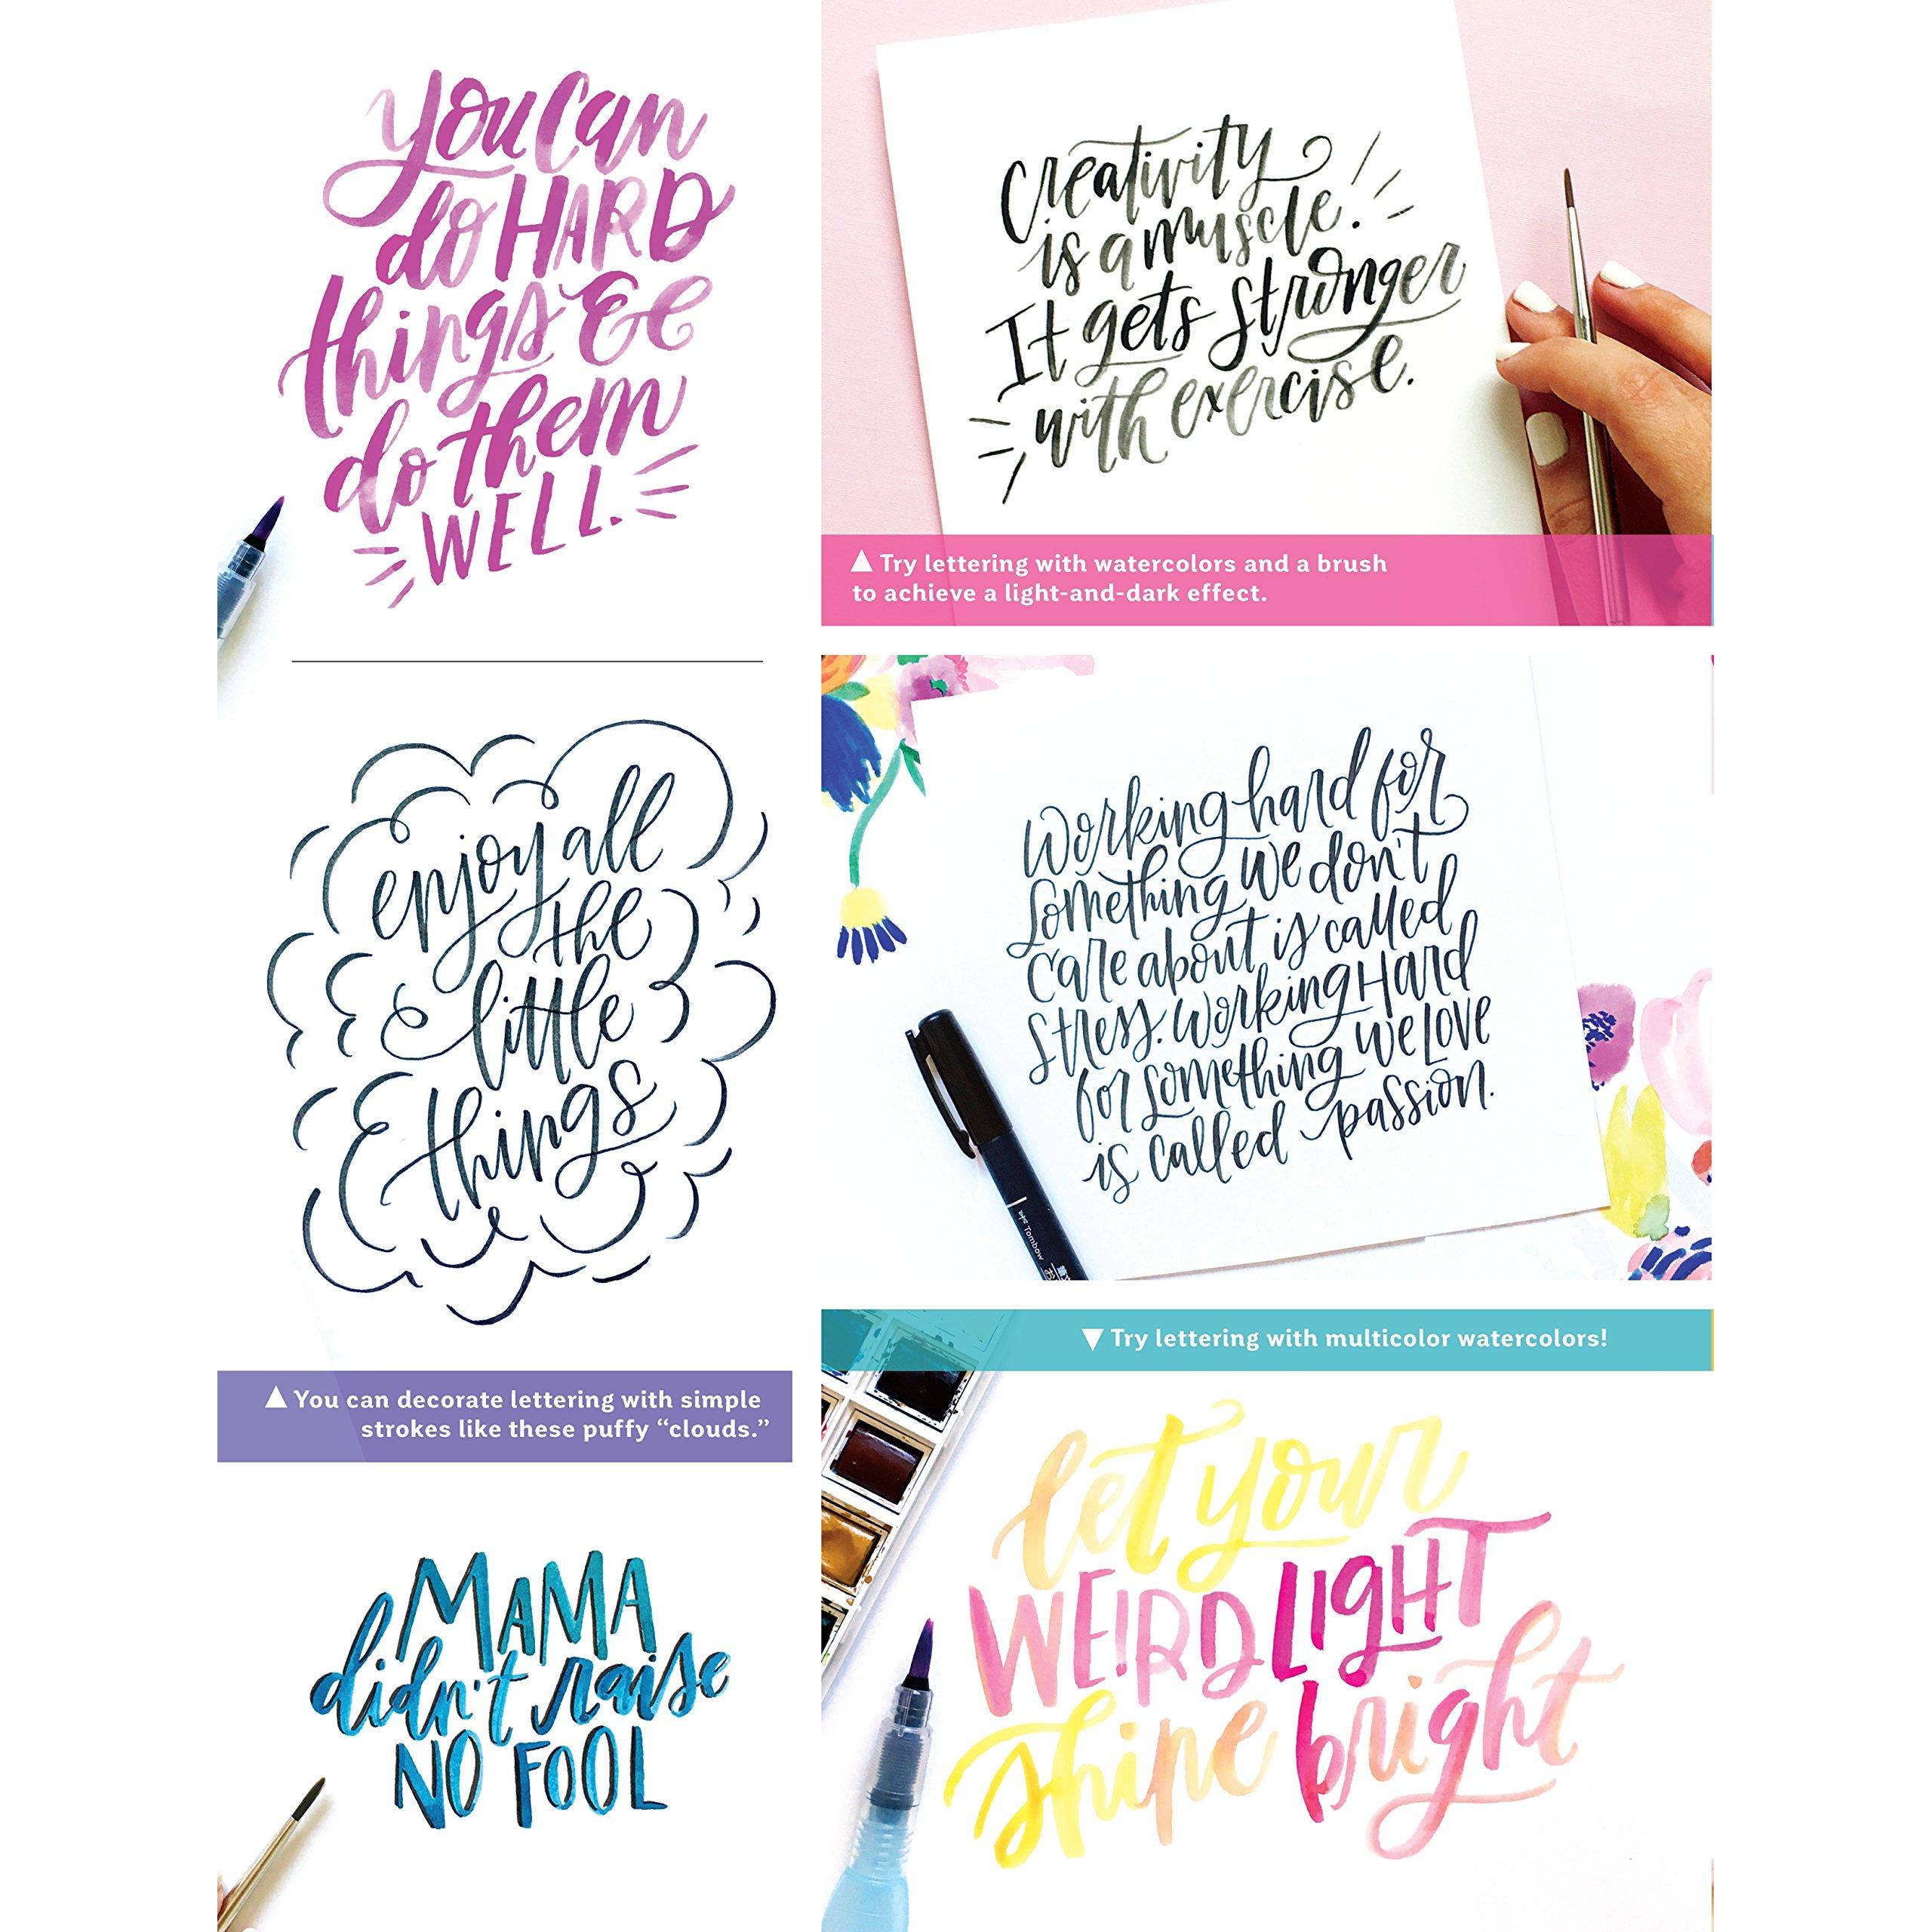 you can
do HARD
things &
do them
WELL.
Creativity
is a muscle.
It gets stronger
with exercise.
▲ Try lettering with watercolors and a brush
to achieve a light-and-dark effect.
enjoy all
the
little
things
▲ You can decorate lettering with simple
strokes like these puffy “clouds.”
Working hard for
something we don't
care about is called
stress. Working Hard
for something we LOVE
is called passion.
Tombow
▼ Try lettering with multicolor watercolors!
MAMA
didn't raise
NO FOOL
let your
WEIRD LIGHT
shine bright